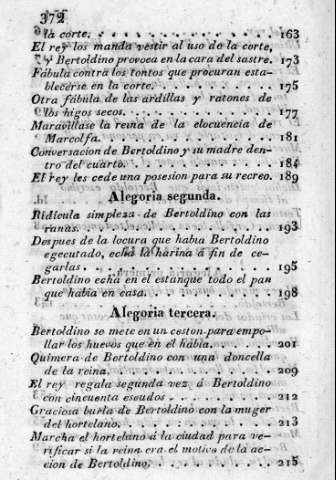 372
la corte. . . . . . . . . . . . . 163
El rey los manda vestir al uso de la corte,
y Bertoldino provoca en la cara del sastre. 173
Fábula contra los tontos que procuran esta-
blecerse en la corte. . . . . . . . 175
Otra fábula de las ardillas y ratones de
los higos secos. . . . . . . . . . 177
Maravíllase la reina de la elocuencia de
Marcolfa. . . . . . . . . . . . . 181
Conversacion de Bertoldino y su madre den-
tro del cuarto. . . . . . . . . . 184
El rey les cede una posesion para su recreo. 189
Alegoria segunda.
Ridícula simpleza de Bertoldino con las
ranas. . . . . . . . . . . . . . 193
Despues de la locura que habia Bertoldino
egecutado, echa la harina á fin de ce-
garlas. . . . . . . . . . . . . . 195
Bertoldino echa en el estanque todo el pan
que habia en casa. . . . . . . . . 198
Alegoria tercera.
Bertoldino se mete en un ceston para empo-
llar los huevos que en él habia. . . . 201
Quimera de Bertoldino con una doncella
de la reina. . . . . . . . . . . . 209
El rey regala segunda vez á Bertoldino
con cincuenta escudos . . . . . . . 212
Graciosa burla de Bertoldino con la muger
del hortelano. . . . . . . . . . . 213
Marcha el hortelano á la ciudad para ve-
rificar si la reina era el motivo de la ac-
cion de Bertoldino. . . . . . . . . 215